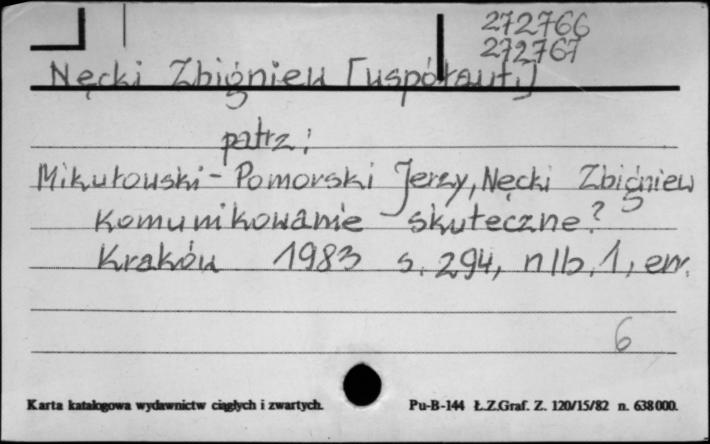 272766
272767
Nęcki Zbigniew [współaut.]
patrz:
Mikułowski-Pomorski Jerzy, Nęcki Zbigniew
Komunikowanie skuteczne?
Kraków 1983 s. 294, nlb. 1, err.
6
Karta katalogowa wydawnictw ciągłych i zwartych. Pu-B-144 Ł.Z.Graf. Z. 120/15/82 n. 638000.